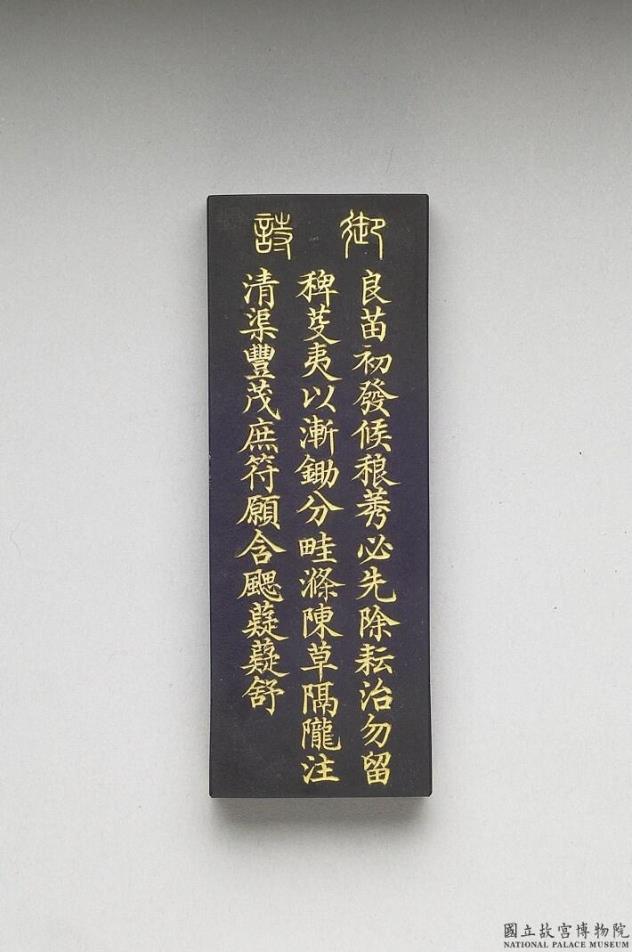 御詩
良苗初發候稂莠必先除耘治勿留
稗芟夷以漸鋤分畦滌陳草隔隴注
清渠豐茂庶符願含颸薿薿舒
國立故宮博物院
NATIONAL PALACE MUSEUM